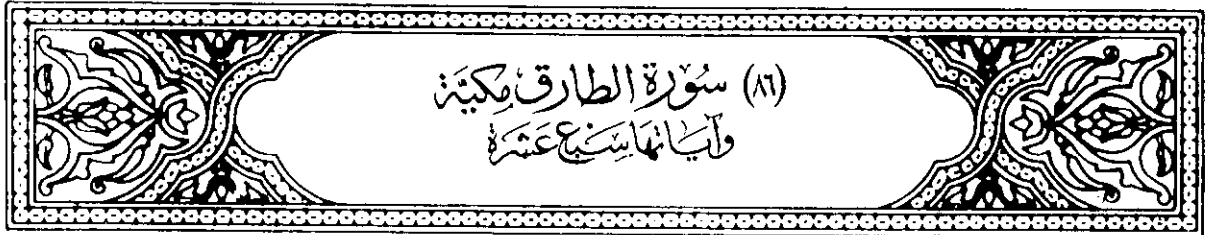 (٨٦) سُورَة الطارق مَكيَّة
وَآيَاتهَا سَبْع عَشَرَة